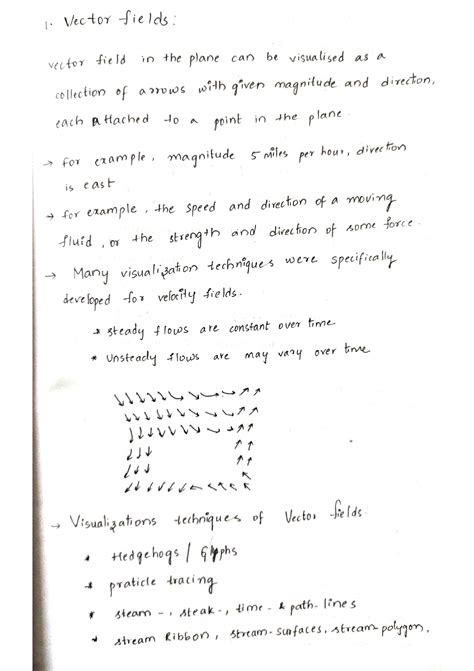 1. Vector fields:
vector field in the plane can be visualised as a
collection of arrows with given magnitude and direction,
each attached to a point in the plane.
→ for example, magnitude 5 miles per hour, direction
is east
→ for example, the speed and direction of a moving
fluid, or the strength and direction of some force.
→ Many visualization techniques were specifically
developed for velocity fields.
* steady flows are constant over time
* Unsteady flows are may vary over time
→ Visualizations techniques of Vector fields.
* Hedgehogs / Glyphs
* praticle tracing
* steam -, steak-, time- & path-lines
* stream Ribbon, stream-surfaces, stream polygon,